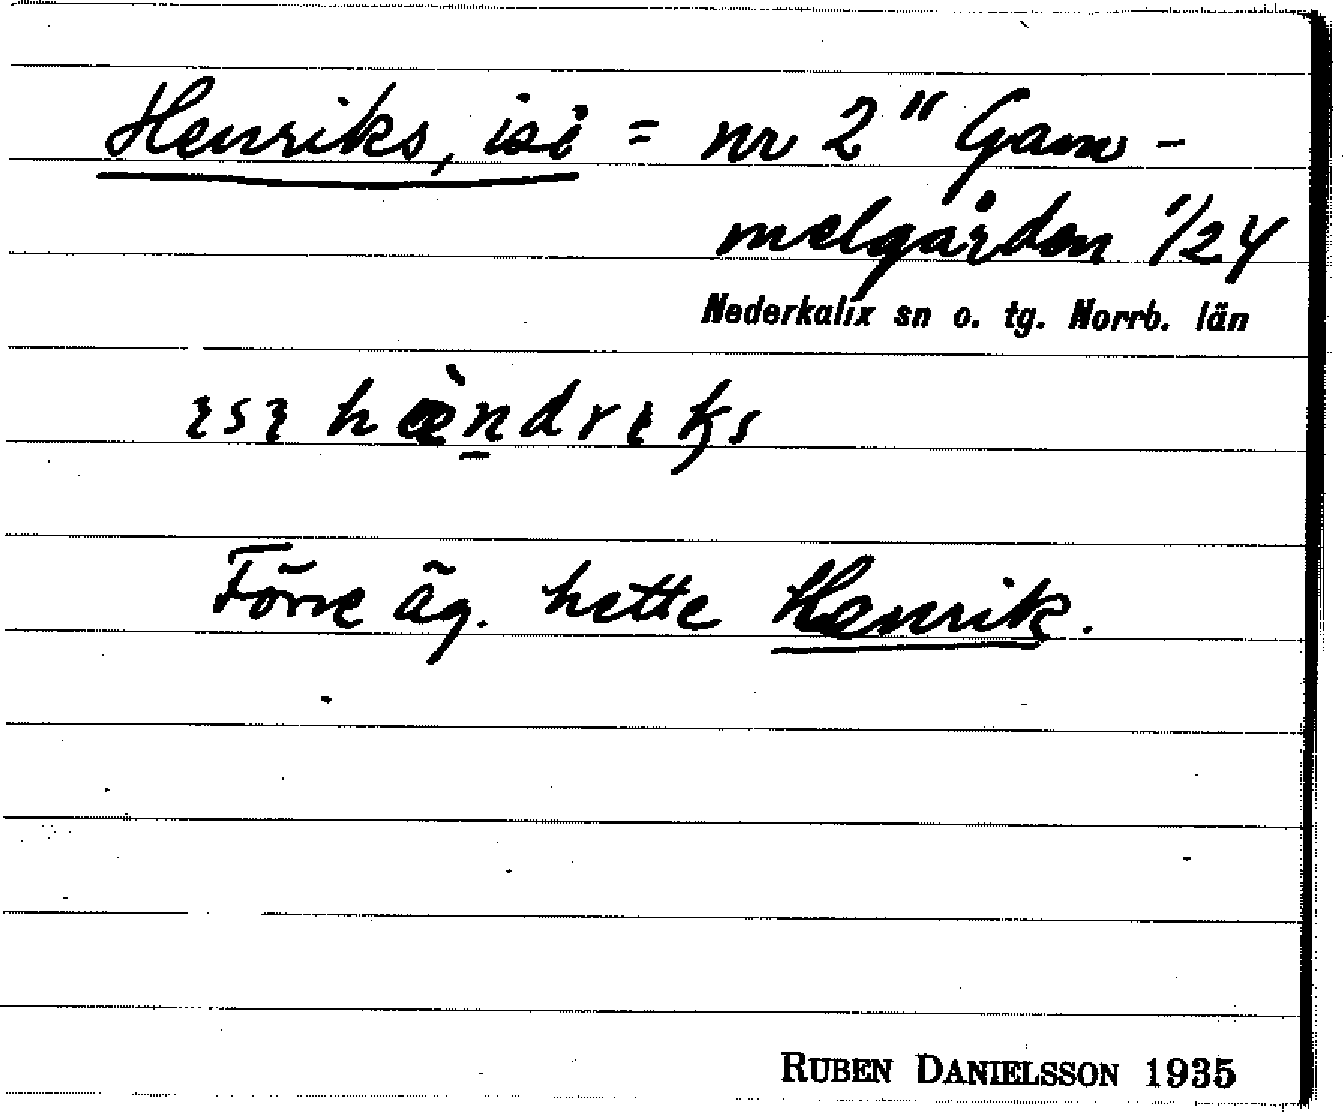 Henriks, isi = nr 2" Gam-
melgården 1/24
Nederkalix sn o. tg. Norrb. län
ɪsɪ hæ̀ndrɪks
Förre äg. hette Henrik.
RUBEN DANIELSSON 1935